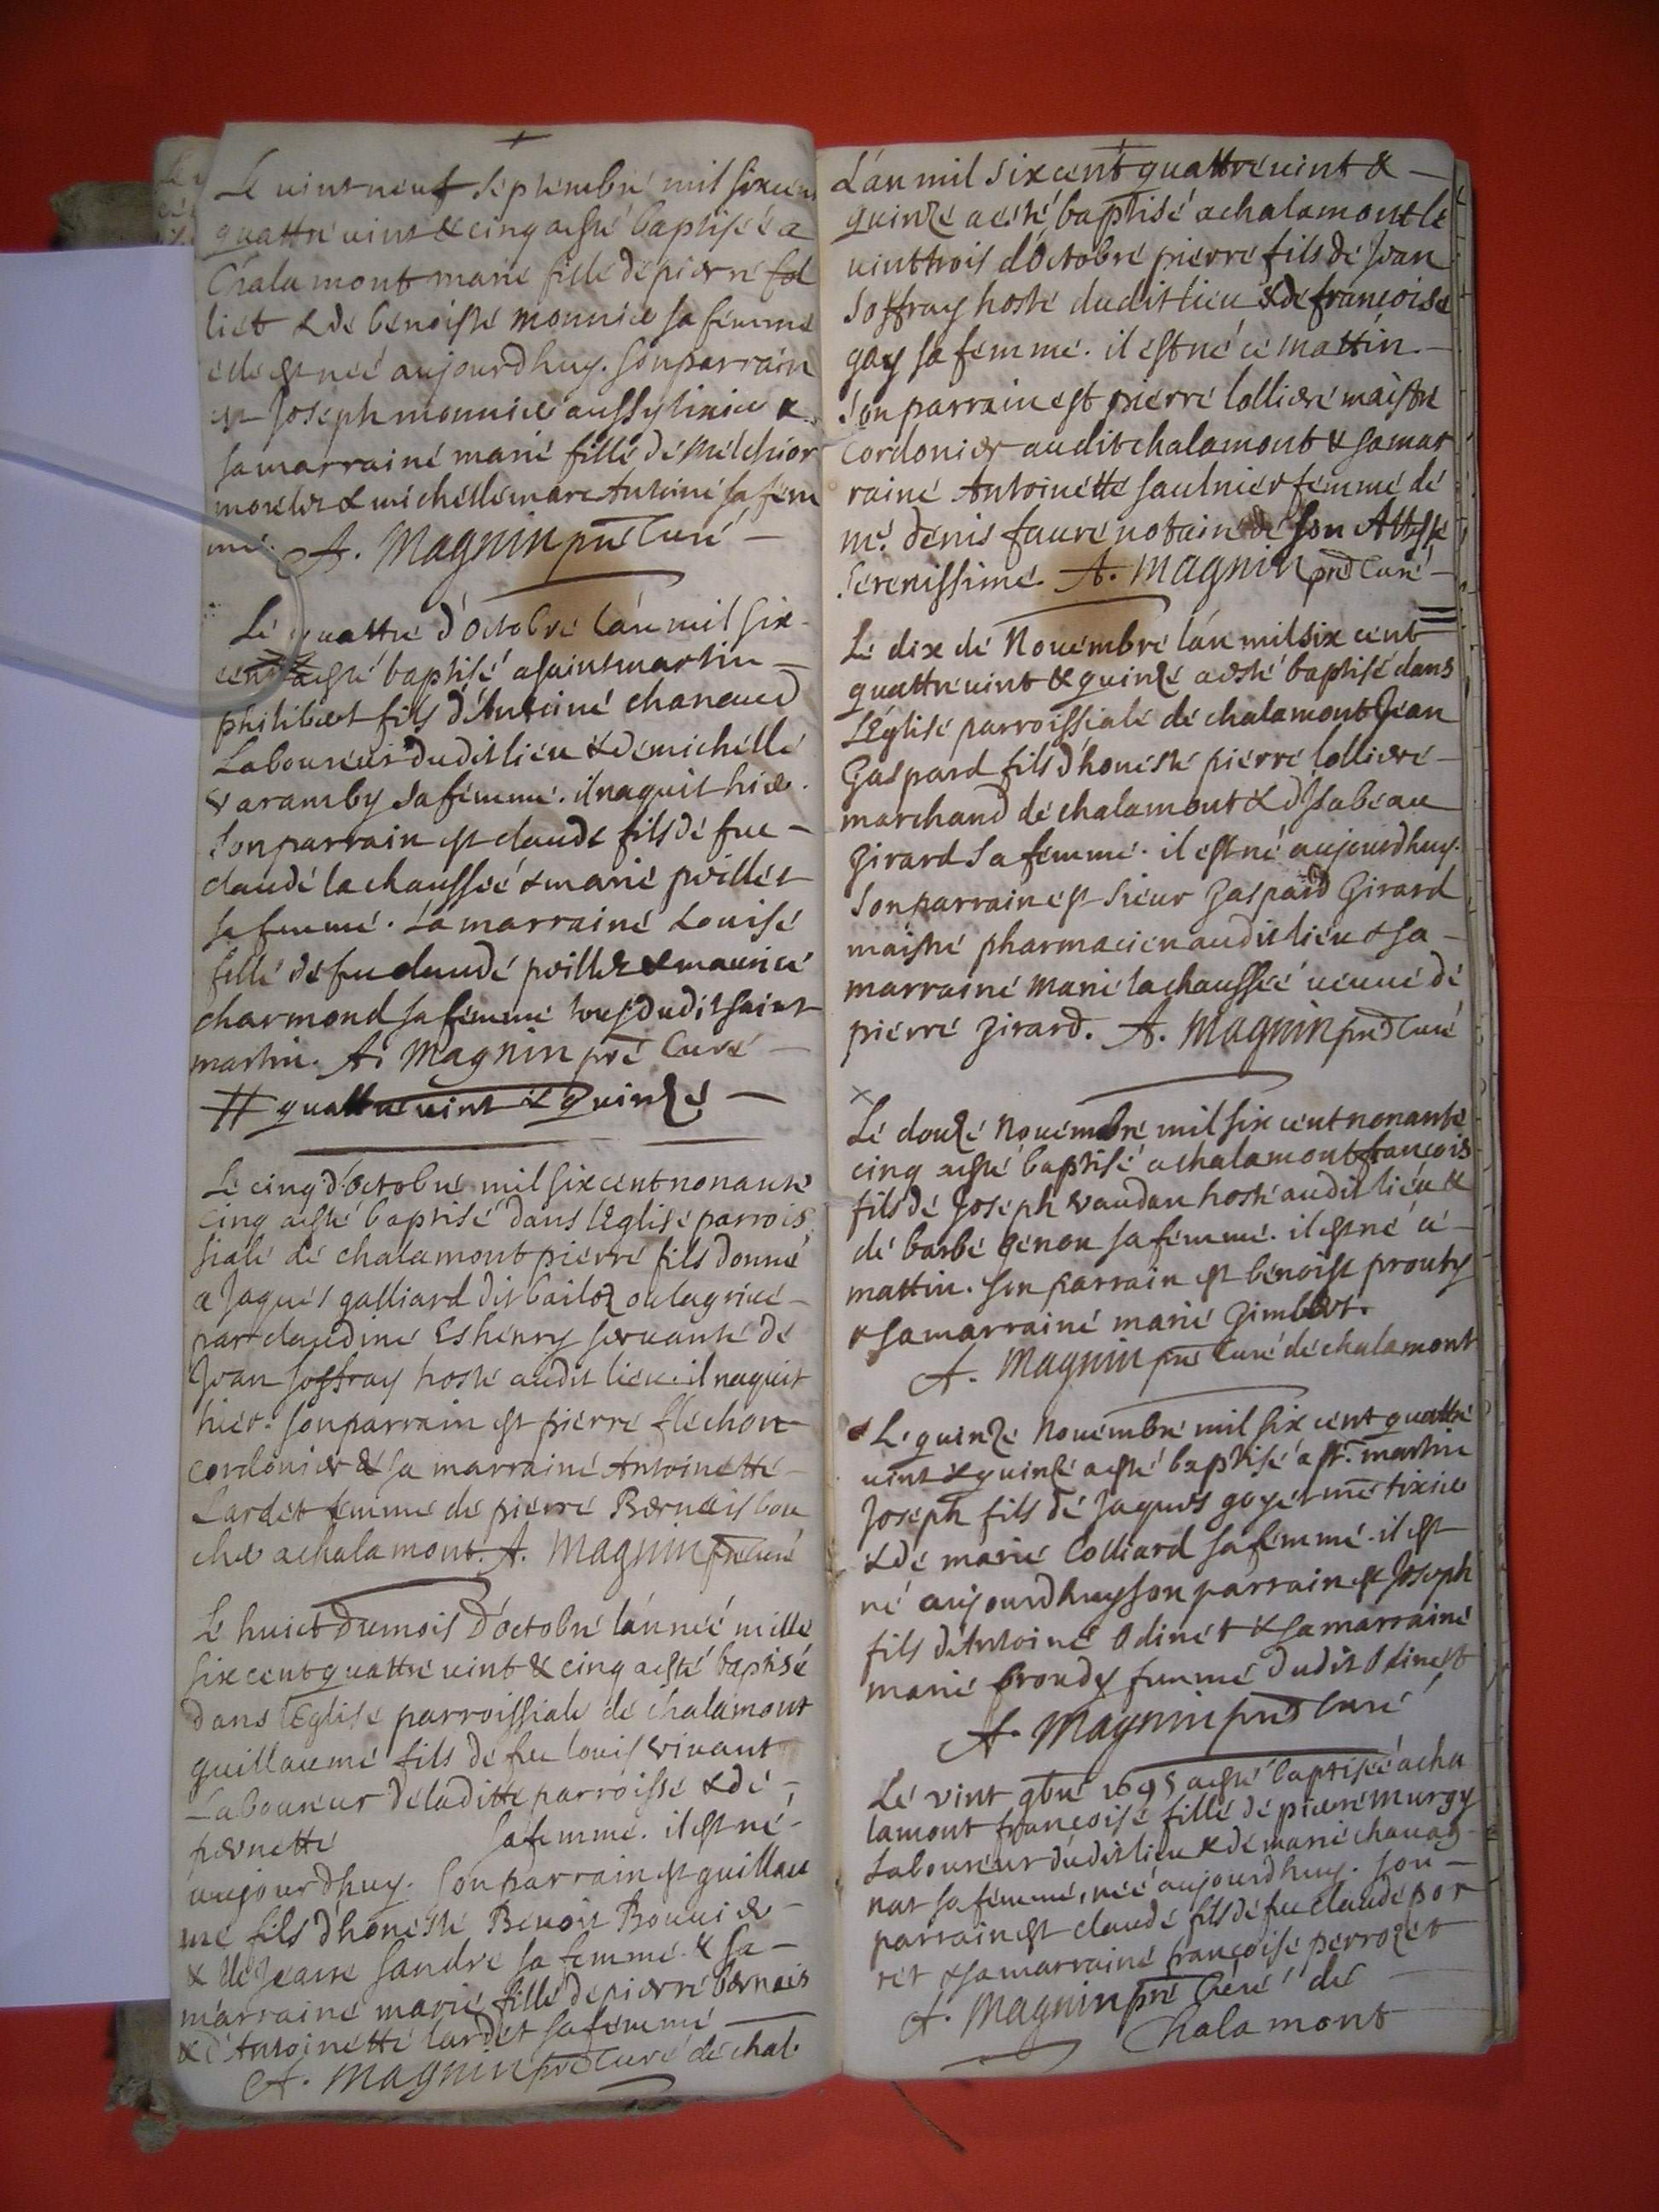 Le vint neuf septembre mil six cen
quattre vint & cinq a esté baptisée a
Chalamont marie fille de pierre fol
liet & de benoiste monnier sa femme
elle est neé aujourdhuy. Son parrain
est Joseph monnier aussy tixier &
sa marraine marie fille de Melchior
morelet & michelle marc Antoine sa fem
me. A. Magnin pre Curé
Le quattre d'octobre l'an mil six
cent a esté baptisé a saint martin
philibert fils d'Antoine chanaud
Laboureur dudit lieu & de michelle
varamby sa femme. il naquit hier.
Son parrain est claude fils de feu
claude la chaussée & marie poillet
sa femme. La marraine Louise
fille de feu claude poillet & maurice
charmond sa femme tous dudit saint
martin. A. Magnin pre Curé
# quattre vint & quinze
Le cinq d'octobre mil six cent nonante
cinq a esté baptisé dans l'Eglise parrois
siale de chalamont pierre fils donné
a Jaques galliard dit bailoz ou lagrice
par claudine Eshenry servante de
Jvan Joffray hoste audit lieu. il naquit
hier. son parrain est pierre flechon
cordonier & sa marraine Antoinette
Lardet femme de pierre Bernais bou
cher a chalamont. A. Magnin pre Curé
Le huict du mois d'octobre l'anneé mille
six cent quattre vint & cinq a esté baptisé
dans l'Eglise parroissiale de chalamont
guillaume fils de feu louis vivant
Laboureur de laditte parroisse & de
pernette sa femme. il est né
aujourdhuy. Son parrain est guillau
me fils d'honeste Benoit Bouvier
& de Jeane sandre sa femme & sa
marraine marie fille de pierre bernais
& d'Antoinette lardet sa femme
A. Magnin pre Curé de chal.
L'an mil six cent quattre vint &
quinze a esté baptisé a chalamont le
vint trois d'Octobre pierre fils de Jvan
Joffray hoste dudit lieu & de francoise
gay sa femme. il est né ce mattin.
Son parrain est pierre lolliere maistre
Cordonier audit chalamont & sa mar
raine Antoinette saulnier femme de
me. denis faure notaire de son Altesse
Serenissime. A. Magnin pre Curé
Le dix de Novembre l'an mil six cent
quattre vint & quinze a esté baptisé dans
l'Eglise parroissiale de chalamont Jean
Gaspard fils d'honeste pierre lolliere
marchand de chalamont & d'Isabeau
Girard sa femme. il est né aujourdhuy.
Son parrain est Sieur Gaspard Girard
maistre pharmacien audit lieu & sa
marraine marie la chaussée veuve de
pierre Girard. A. Magnin pre Curé
×
Le douze Novembre mil six cent nonante
cinq a esté baptisé a chalamont francois
fils de Joseph vaudan hoste audit lieu &
de barbe genon sa femme. il est né ce
mattin. Son parrain est benoist prouty
& sa marraine marie Gimbert.
A. Magnin pre Curé de chalamont
Le quinze Novembre mil six cent quattre
vint & quinze a esté baptisé a st. martin
Joseph fils de Jaques goyet me tixier
& de marie Colliard sa femme. il est
né aujourdhuy son parrain est Joseph
fils d'Antoine Odinet & sa marraine
marie broudy femme dudit Odinest
A. Magnin pre Curé
Le vint 9bre 1695 a esté baptisée a cha
lamont francoise fille de pierre murgy
Laboureur dudit lieu & de marie chavag
nat sa femme, neé aujourdhuy. son
parrain est claude fils de feu claude por
ret & sa marraine francoise perrozet
A. Magnin pre Curé de
Chalamont